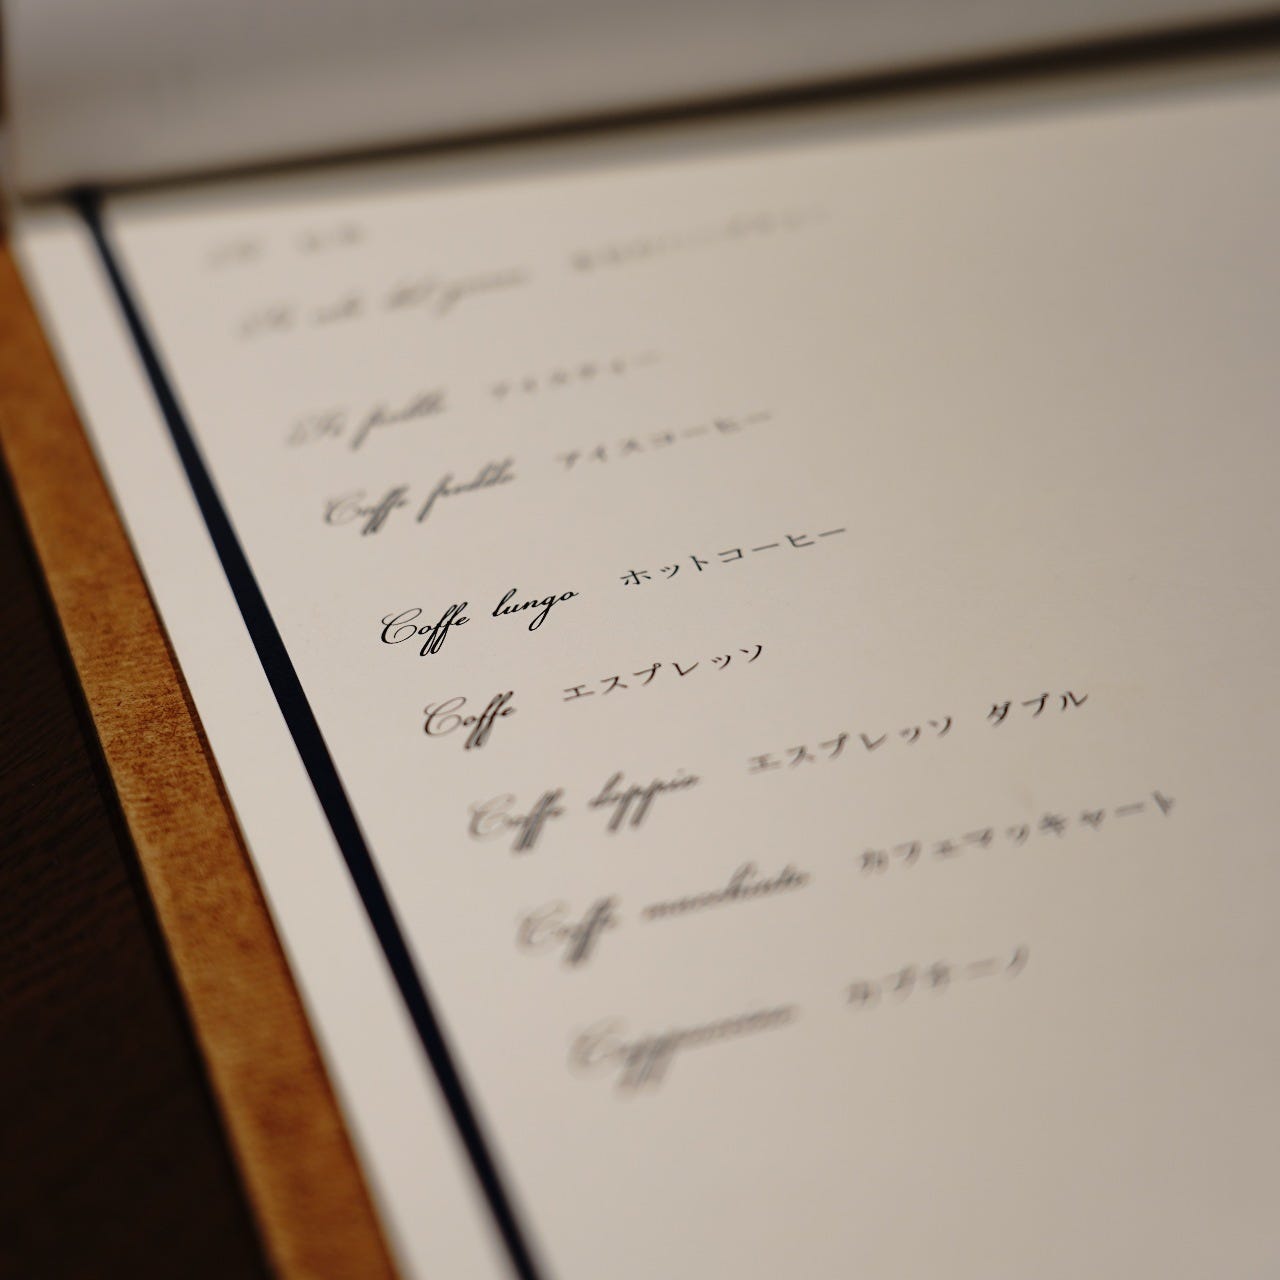 Te freddo アイスティー
Coffe freddo アイスコーヒー
Coffe lungo ホットコーヒー
Coffe エスプレッソ
Coffe doppio エスプレッソ ダブル
Coffe macchiato カフェマッキャート
Cappuccino カプチーノ